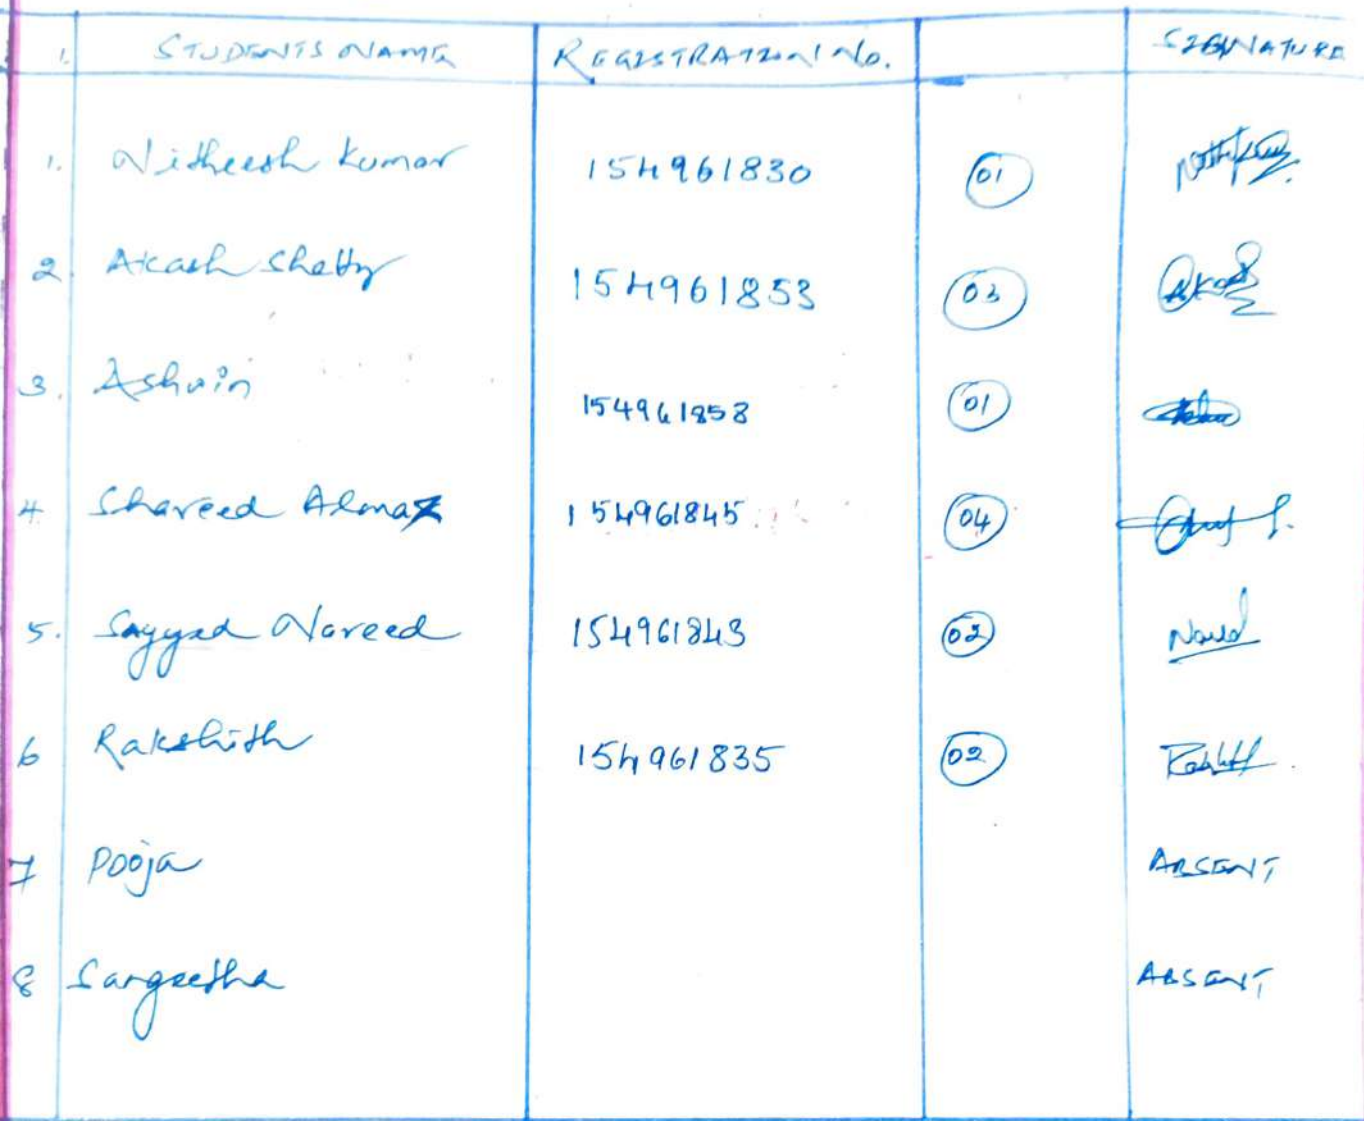 1. STUDENTS NAME REGISTRATION No. SIGNATURE
1. Nitheesh Kumar 154961830 01
2. Akash Shetty 154961853 03 Akash
3. Ashwin 154961858 01
4. Shareed Almaz 154961845 04
5. Sayyad Naveed 154961843 02 Naved
6 Rakshith 154961835 02
7 Pooja ABSENT
8 Sangeetha ABSENT